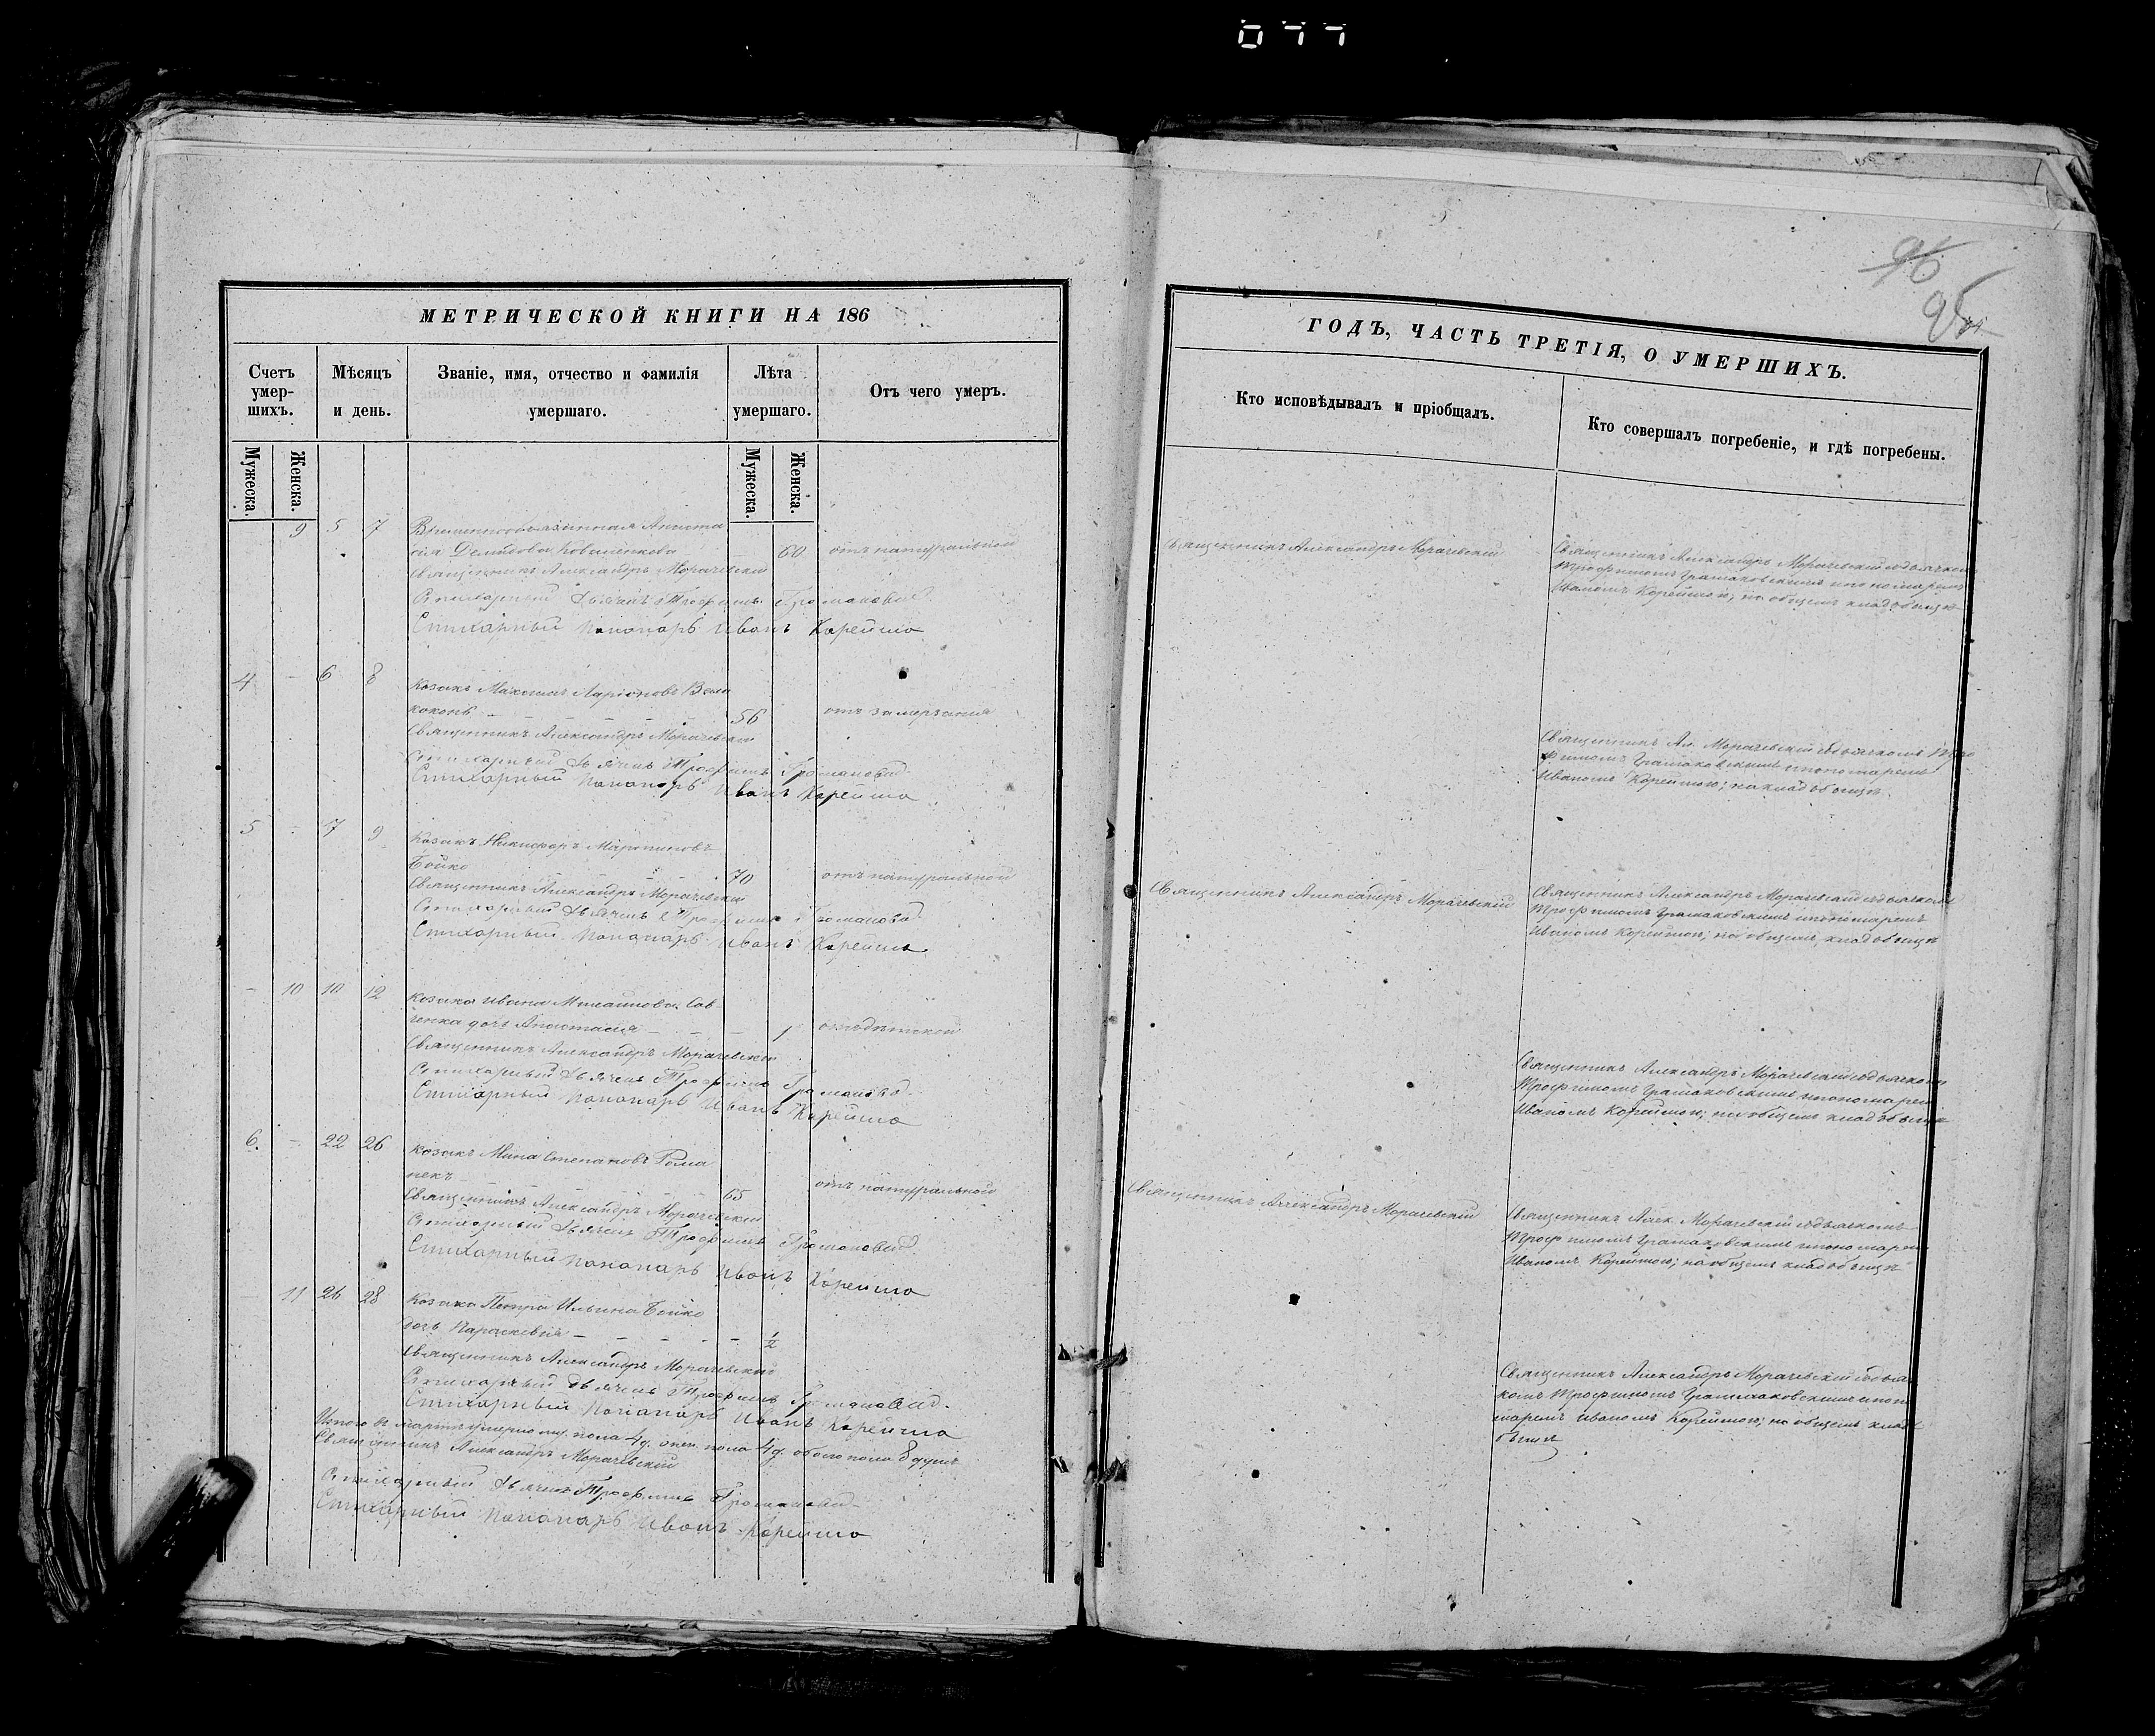 077
96
95
МЕТРИЧЕСКОЙ КНИГИ НА 186
Счетъ умерших.
Мѣсяцъ и день.
Званіе, имя, отчество и фамилія умершаго.
Лѣта умершаго.
Отъ чего умеръ.
Мужеска.
Женска.
Мужеска.
Женска.
9 5 7 Временнообязанная Анаста
сія Демидова Коваленкова — 60 отъ натуральной
Священникъ Александръ Морачевскій
Стихарный дьячекъ Трофимъ
Стихарный Пономарь Иванъ Корейша
4 – 6 8 Козакъ Максимъ Ларіоновъ Вели
коконь 56 отъ замерзанія
Священникъ Александръ Морачевскій
Стихарный дьячекъ Трофимъ
Стихарный Пономарь Иванъ Корейша
5 – 7 9 Козакъ Никифоръ Мартиновъ
Бойко 70 отъ натуральной
Священникъ Александръ Морачевскій
Стихарный дьячекъ Трофимъ
Стихарный Пономарь Иванъ Корейша
– 10 10 12 Козака Ивана Михайлова Сав
ченка дочь Анастасія — — — 1 отъ дѣтской
Священникъ Александръ Морачевскій
Стихарный дьячекъ Трофимъ
Стихарный Пономарь Иванъ Корейша
6. – 22 26 Козакъ Мина Степановъ Рома
некъ 65 отъ натуральной
Священникъ Александръ Морачевскій
Стихарный дьячекъ Трофимъ
Стихарный Пономарь Иванъ Корейша
– 11 26 28 Козака Петра Ильина Бойко
дочь Параскевія — — — — — 1/2
Священникъ Александръ Морачевскій
Стихарный дьячекъ Трофимъ
Стихарный Пономарь Иванъ Корейша
Итого въ мартѣ умерло муж. пола 4 д. жен. пола 4 д. обоего пола 8 душъ
Священникъ Александръ Морачевскій
Стихарный дьячекъ Трофимъ
Стихарный Пономарь Иванъ Корейша
ГОДЪ, ЧАСТЬ ТРЕТІЯ, О УМЕРШИХЪ.
Кто исповѣдывалъ и пріобщалъ.
Кто совершалъ погребеніе, и гдѣ погребены.
Священникъ Александръ Морачевскій
Священникъ Александръ Морачевскій съ дьячкомъ
Трофимомъ и пономаремъ
Иваномъ Корейшою; на общемъ кладбищѣ
Священникъ Ал. Морачевскій съ дьячкомъ Тро
фимомъ и пономаремъ
Иваномъ Корейшою; на кладбищѣ.
Священникъ Александръ Морачевскій
Священникъ Александръ Морачевскій съ дьячкомъ
Трофимомъ и пономаремъ
Иваномъ Корейшою; на общемъ кладбищѣ
Священникъ Александръ Морачевскій съ дьячкомъ
Трофимомъ и пономарем
Иваномъ Корейшою; на общемъ кладбищѣ
Священникъ Александръ Морачевскій
Священникъ Алек. Морачевскій съ дьячкомъ
Трофимомъ и пономарем
Иваномъ Корейшою; на общемъ кладбищѣ
Священникъ Александръ Морачевскій съ дья
комъ Трофимомъ и поно
маремъ Иваномъ Корейшою; на общемъ клад
бищѣ